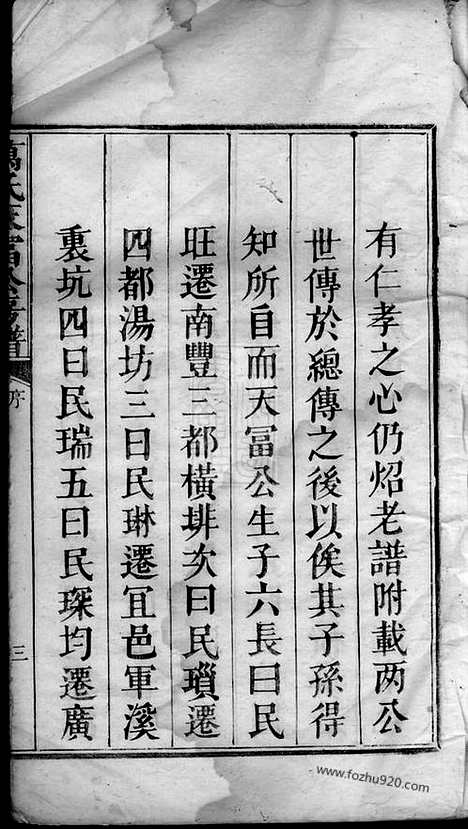 有仁孝之心仍炤老譜附載两公
世傳於總傳之後以俟其子孫得
知所自而天冨公生子六長曰民
旺遷南豐三都橫排次曰民瑣遷
四都湯坊三曰民琳遷冝邑軍溪
裏坑四曰民瑞五曰民琛均遷廣
萬氏天富公房譜
序
三
https://www.fozhu920.com/